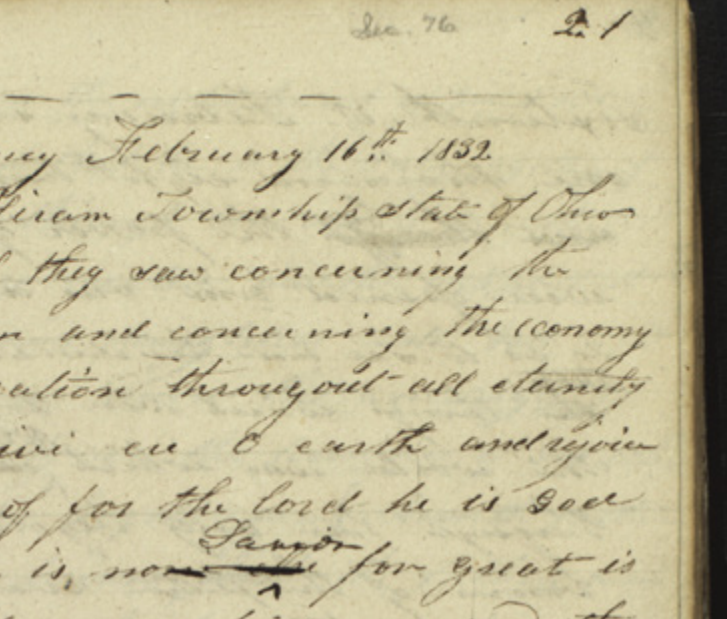 Sec. 76 2.1
February 16th. 1832
Hiram Township state of Ohio
they saw concerning the
and concerning the economy
ation througout all eternity
ear O earth and rejoice
of for the lord he is god
Savior
is none else for great is
the